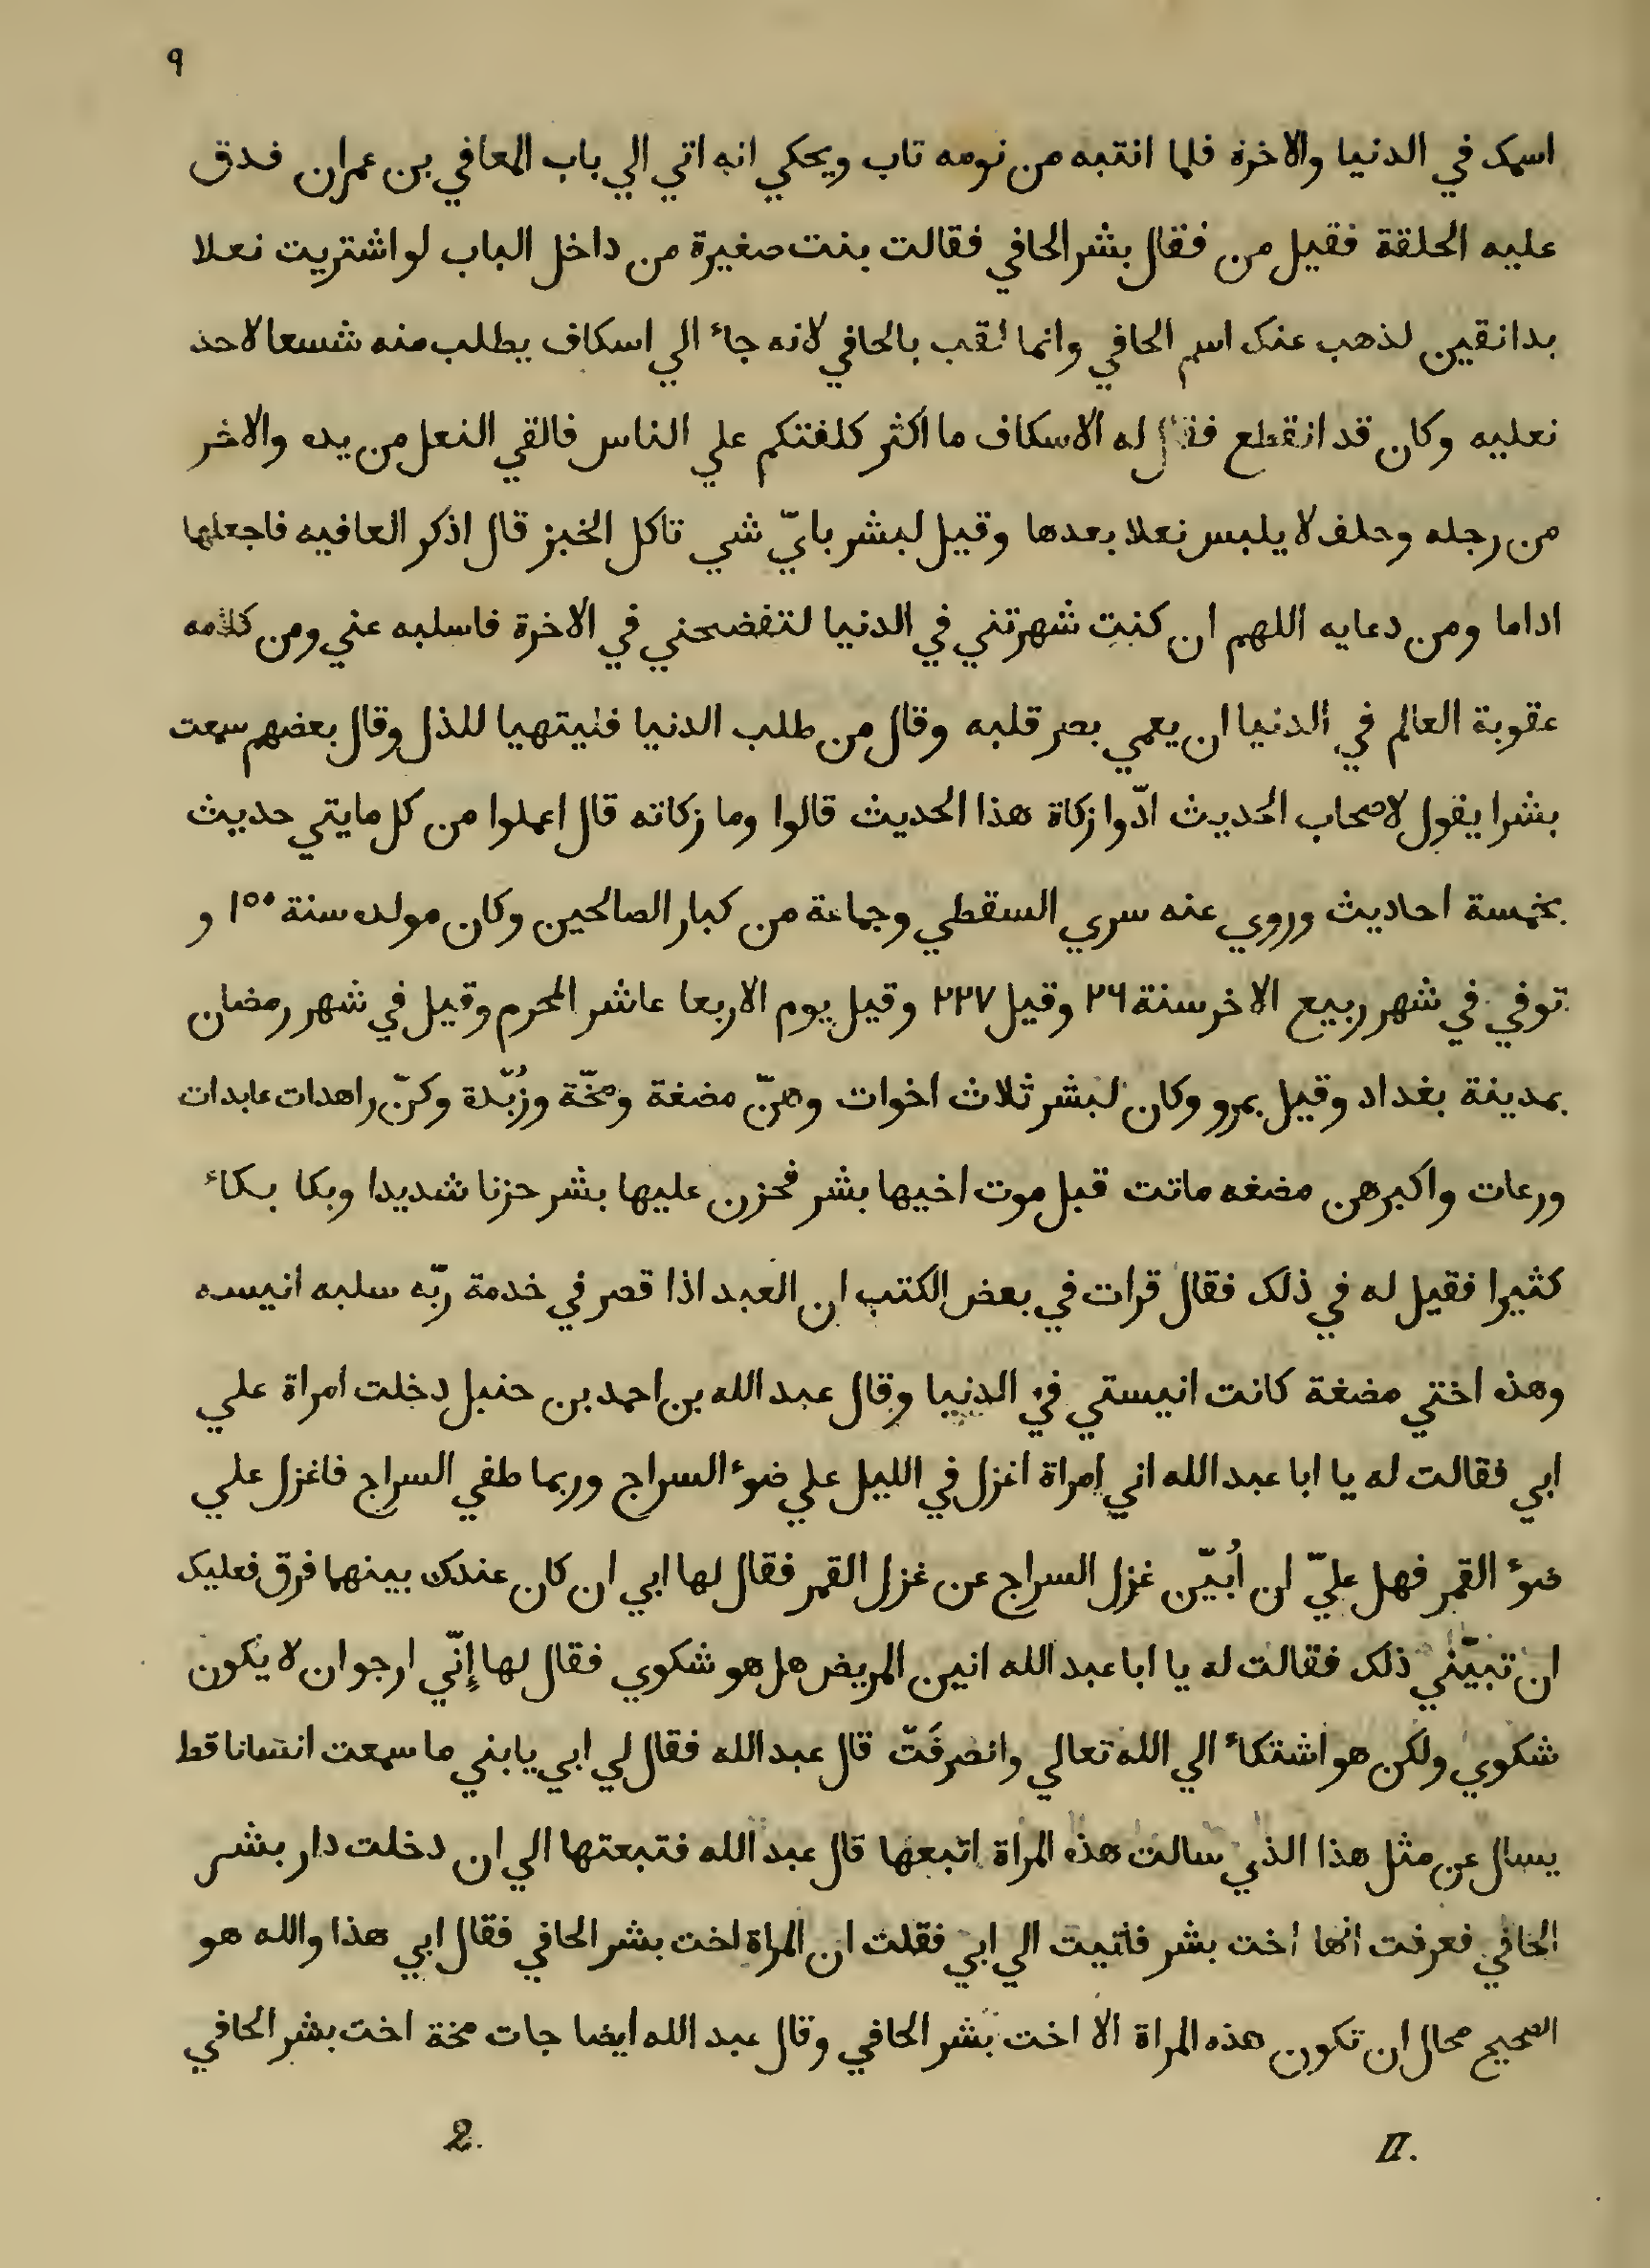 ٩
اسمك في الدنيا والاخرة فلما انتبه من نومه تاب ويحكي انه اتي الي باب المعافي بن عمران فدق
عليه الحلقة فقيل من فقال بشر الحافي فقالت بنت صغيرة من داخل الباب لو اشتريت نعلا
بدانقين لذهب عنك اسم الحافي وانما لقب بالحافي لانه جاء الي اسكاف يطلب منه شسعا لاحد
نعليه وكان قد انقطع فقال له الاسكاف ما اكثر كلفتكم علي الناس فالقي النعل من يده والاخر
من رجله وحلف لا يلبس نعلا بعدها وقيل لبشر بايّ شي تاكل الخبز قال اذكر العافيه فاجعلها
اداما ومن دعايه اللهم ان كنتِ شهرتني في الدنيا لتفضحني في الاخرة فاسلبه عني ومن كلامه
عقوبة العالم في الدنيا ان يعمي بصر قلبه وقال من طلب الدنيا فليتهيا للذل وقال بعضهم سمعت
بشرا يقول لاصحاب الحديث ادّوا زكاة هذا الحديث قالوا وما زكاته قال اعملوا من كل مايتي حديث
بخمسة احاديث وروي عنه سري السقطي وجماعة من كبار الصالحين وكان مولده سنة ١٥٠ و
توفي في شهر ربيع الاخر سنة ٢٢٦ وقيل ٢٢٧ وقيل يوم الاربعا عاشر المحرم وقيل في شهر رمضان
بمدينة بغداد وقيل بمرو وكان لبشر ثلاث اخوات وهنّ مضغة ومخّة وزُبّدة وكنّ زاهدات عابدات
ورعات واكبرهن مضغه ماتت قبل موت اخيها بشر فحزن عليها بشر حزنا شديدا وبكا بكاء
كثيرا فقيل له في ذلك فقال قرات في بعض الكتب ان العبد اذا قصر في خدمة ربّه سلبه انيسه
وهذه اختي مضغة كانت انيستي في الدنيا وقال عبد الله بن احمد بن حنبل دخلت امراة علي
ابي فقالت له يا ابا عبد الله اني امراة اغزل في الليل علي ضوء السراج وربما طفي السراج فاغزل علي
ضوء القمر فهل عليّ ان أُبيّن غزل السراج عن غزل القمر فقال لها ابي ان كان عندك بينهما فرق فعليك
ان تبيّني ذلك فقالت له يا ابا عبد الله انين المريض هل هو شكوي فقال لها إنّي ارجو ان لا يكون
شكوي ولكن هو اشتكاء الي الله تعالي وانصرفَتّ قال عبد الله فقال لي ابي يا بني ما سمعت انسانا قط
يسال عن مثل هذا الذي سالت هذه المراة اتبعها قال عبد الله فتبعتها الي ان دخلت دار بشر
الحافي فعرفت انها اخت بشر فاتيت الي ابي فقلت ان المراة اخت بشر الحافي فقال ابي هذا والله هو
الصحيح محال ان تكون هذه المراة الا اخت بشر الحافي وقال عبد الله ايضا جات مخة اخت بشر الحافي
II. 2.